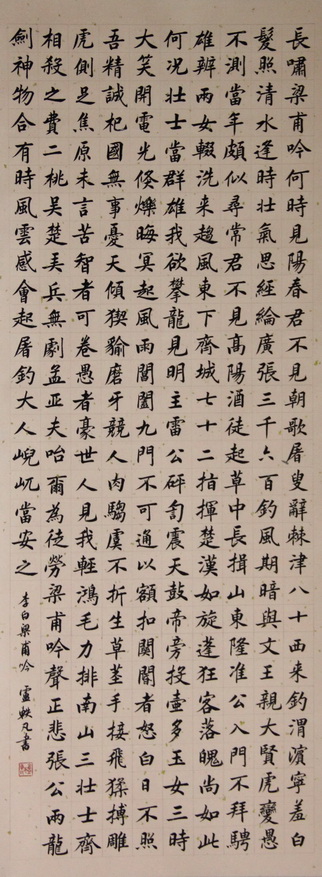 長嘯梁甫吟何時見陽春君不見朝歌屠叟辭棘津八十西来釣渭濱寧羞白
髮照清水逢時壯氣思經綸廣張三千六百釣風期暗與文王親大賢虎變愚
不測當年頗似尋常君不見高陽酒徒起草中長揖山東隆准公入門不拜騁
雄辨兩女輟洗来趨風東下齊城七十二指揮楚漢如旋蓬狂客落魄尚如此
何况壯士當群雄我欲攀龍見明主雷公砰訇震天鼓帝旁投壺多玉女三時
大笑開電光倏爍晦冥起風雨閶闔九門不可通以額扣關閽者怒白日不照
吾精誠杞國無事憂天傾猰貐磨牙競人肉騶虞不折生草莖手接飛猱搏雕
虎側足焦原未言苦智者可卷愚者豪世人見我輕鴻毛力排南山三壯士齊
相殺之費二桃吳楚弄兵無劇孟亞夫咍爾為徒勞梁甫吟聲正悲張公兩龍
劍神物合有時風雲感會起屠釣大人峴屼當安之
李白梁甫吟 盧軼凡書